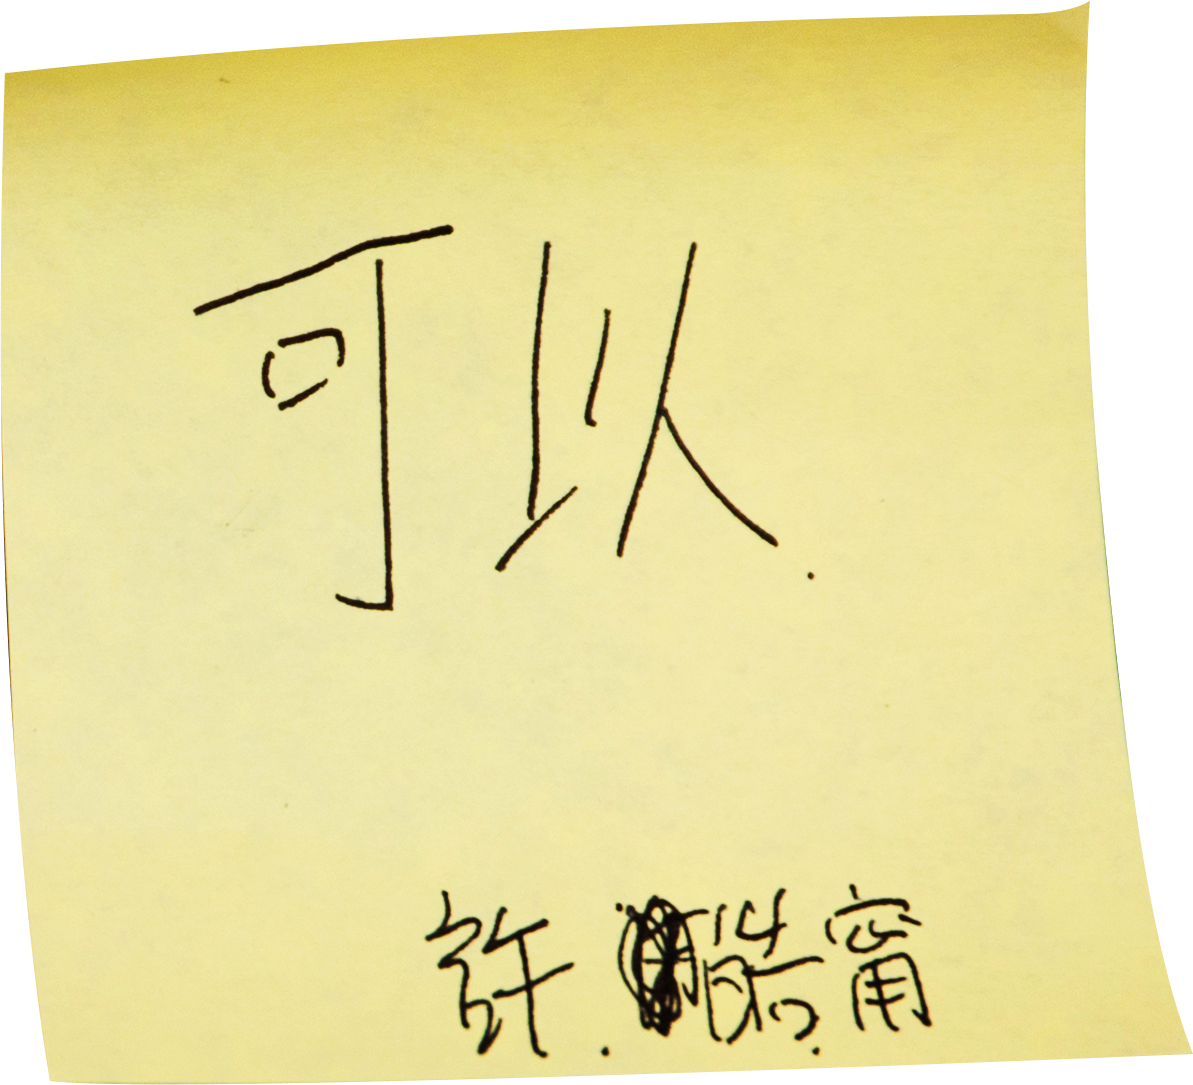 可以.
許皓甯